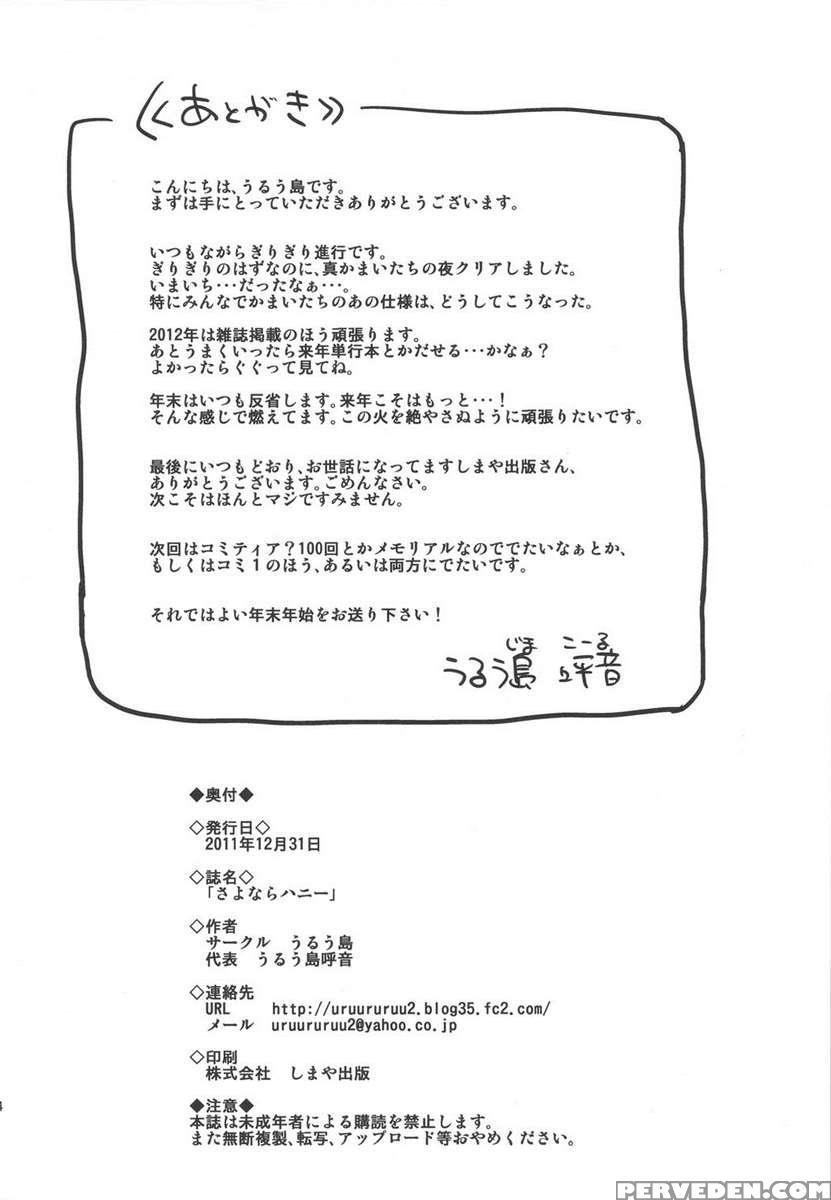 《あとがき》
こんにちは、うるう島です。
まずは手にとっていただきありがとうございます。
いつもながらぎりぎり進行です。
ぎりぎりのはずなのに、真かまいたちの夜クリアしました。
いまいち･･･だったなぁ･･･。
特にみんなでかまいたちのあの仕様は、どうしてこうなった。
2012年は雑誌掲載のほう頑張ります。
あとうまくいったら来年単行本とかだせる･･･かなぁ？
よかったらぐぐって見てね。
年末はいつも反省します。来年こそはもっと･･･！
そんな感じで燃えてます。この火を絶やさぬように頑張りたいです。
最後にいつもどおり、お世話になってますしまや出版さん、
ありがとうございます。ごめんなさい。
次こそはほんとマジですみません。
次回はコミティア？100回とかメモリアルなのででたいなぁとか、
もしくはコミ１のほう、あるいは両方にでたいです。
それではよい年末年始をお送り下さい！
じま こーる
うるう島 呼音
◆奥付◆
◇発行日◇
2011年12月31日
◇誌名◇
「さよならハニー」
◇作者
サークル うるう島
代表 うるう島呼音
◇連絡先
URL http://uruururuu2.blog35.fc2.com/
メール uruururuu2@yahoo.co.jp
◇印刷
株式会社 しまや出版
◆注意◆
本誌は未成年者による購読を禁止します。
また無断複製、転写、アップロード等おやめください。
4
PERVEDEN.COM